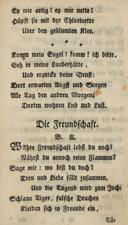 Ey wie artig! ey wie nette!
Hüpft sie mit der Chlorinette
Über den geblümten Klee.
Komm mein Engel! komm! ich bitte,
Seh in meine Lauberhütte,
Und erquicke deine Brust:
Dort erwarten Angst und Sorgen
Wo Tag den andern Morgen;
Dorten wohnen Lieb und Lust.
Die Freundschaft.
B. A.
Wahre Freundschaft lebst du noch?
Nährst du annoch deine Flammen?
Sage mir: wo bist du doch?
Treu und Liebe fällt zusammen,
Und die Tugend wird zum Joch:
Schlaue Tiger, falsche Drachen
Kleiden sich in Freunde ein,
Tü-